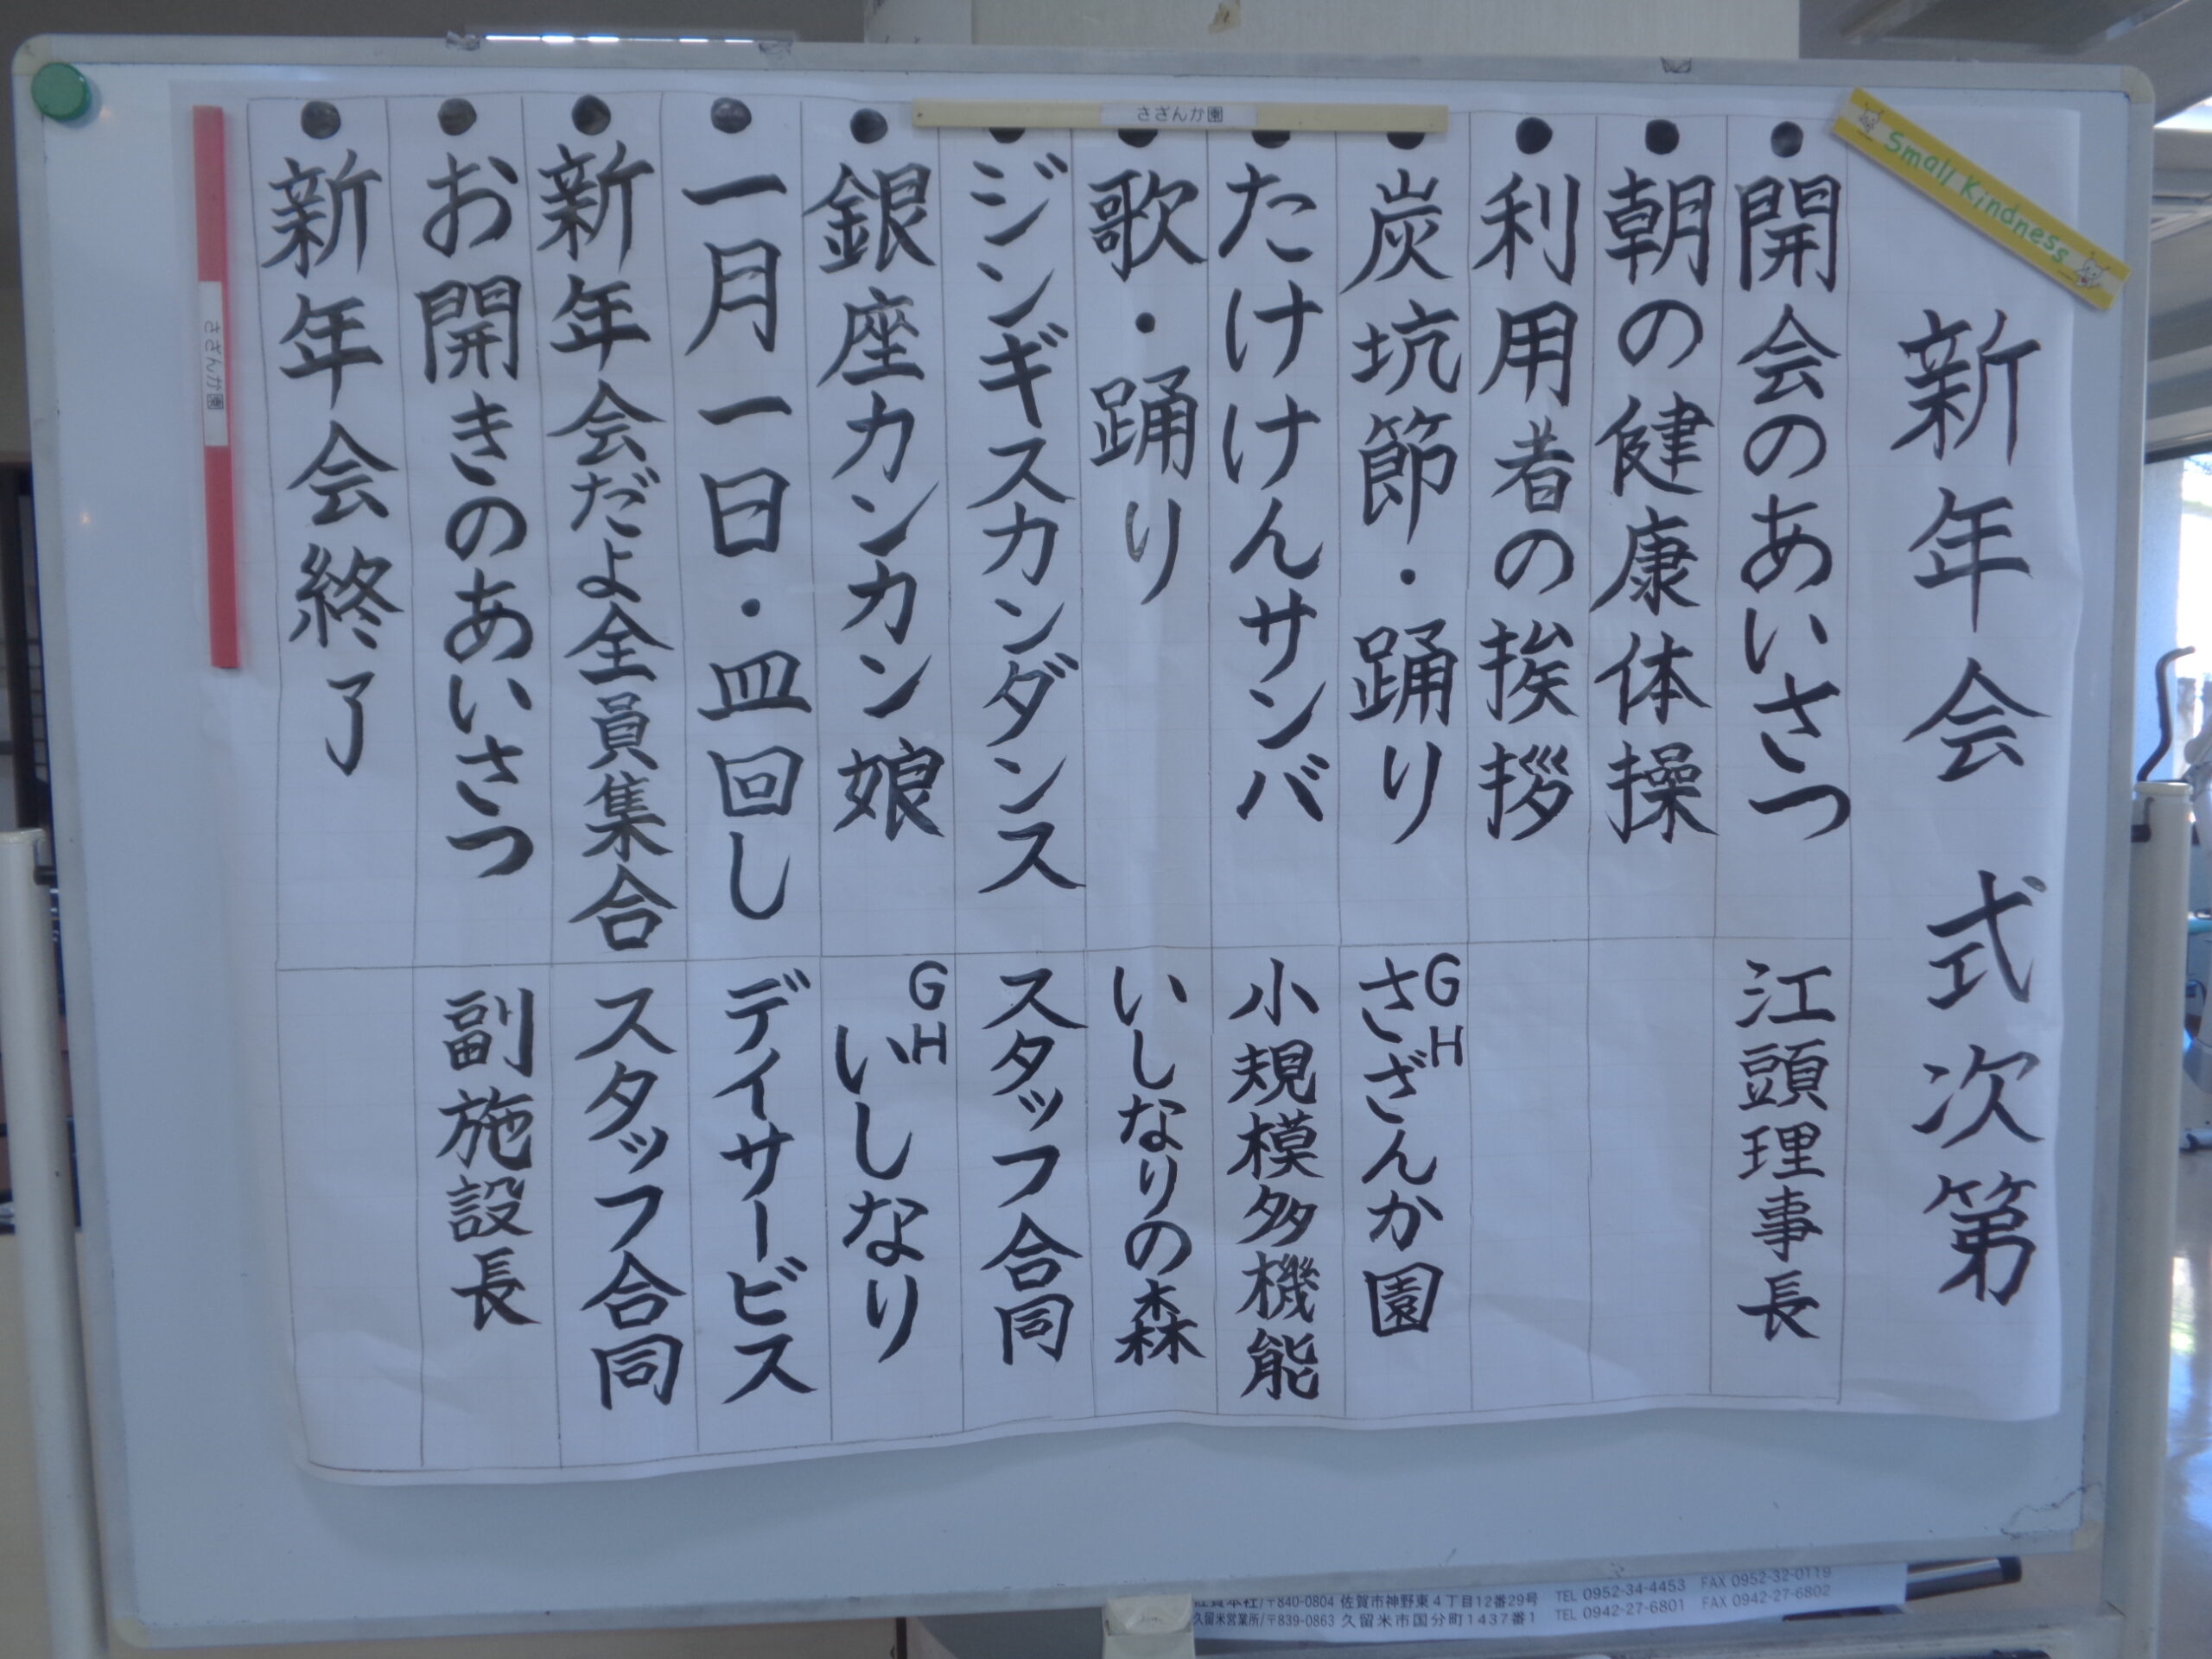 新年会 式次第
● 開会のあいさつ 江頭理事長
● 朝の健康体操
● 利用者の挨拶
● 炭坑節・踊り GHさざんか園
● たけけんサンバ 小規模多機能
● 歌・踊り いしなりの森
● ジンギスカンダンス スタッフ合同
● 銀座カンカン娘 GHいしなり
● 一月一日・皿回し デイサービス
● 新年会だよ全員集合 スタッフ合同
● お開きのあいさつ 副施設長
● 新年会終了
Small Kindness
さざんか園
さざんか園
本社/〒840-0804 佐賀市神野東4丁目12番29号 TEL 0952-34-4453 FAX 0952-32-0119
久留米営業所/〒839-0863 久留米市国分町1437番1 TEL 0942-27-6801 FAX 0942-27-6802